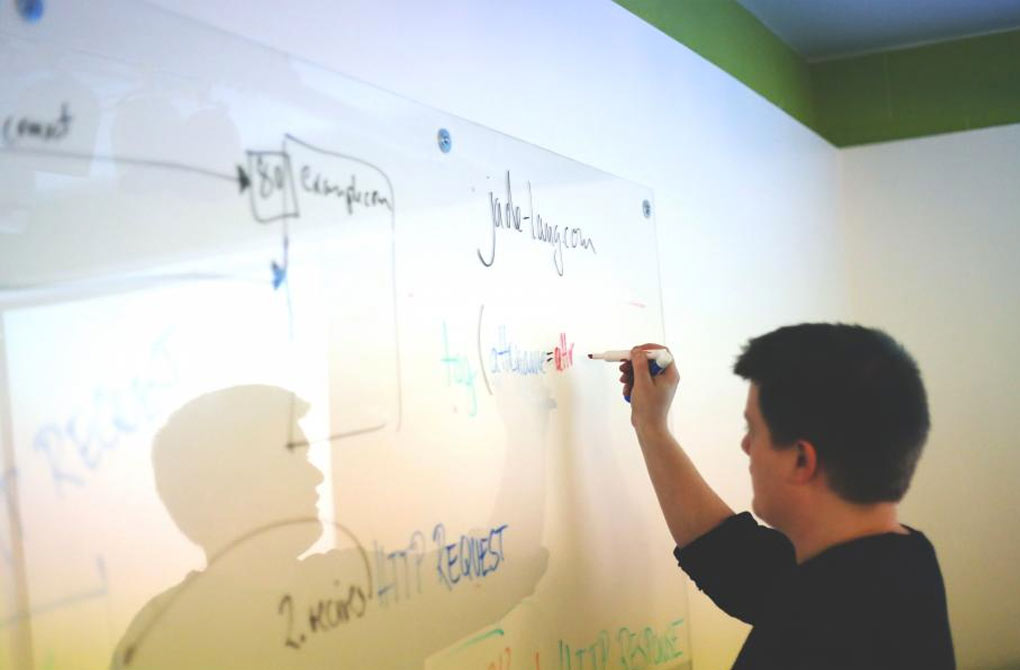 80 example.com
jade-lang.com
tag (attr.name=attr
REQUEST
2. recives HTTP REQUEST
HTTP RESPONSE